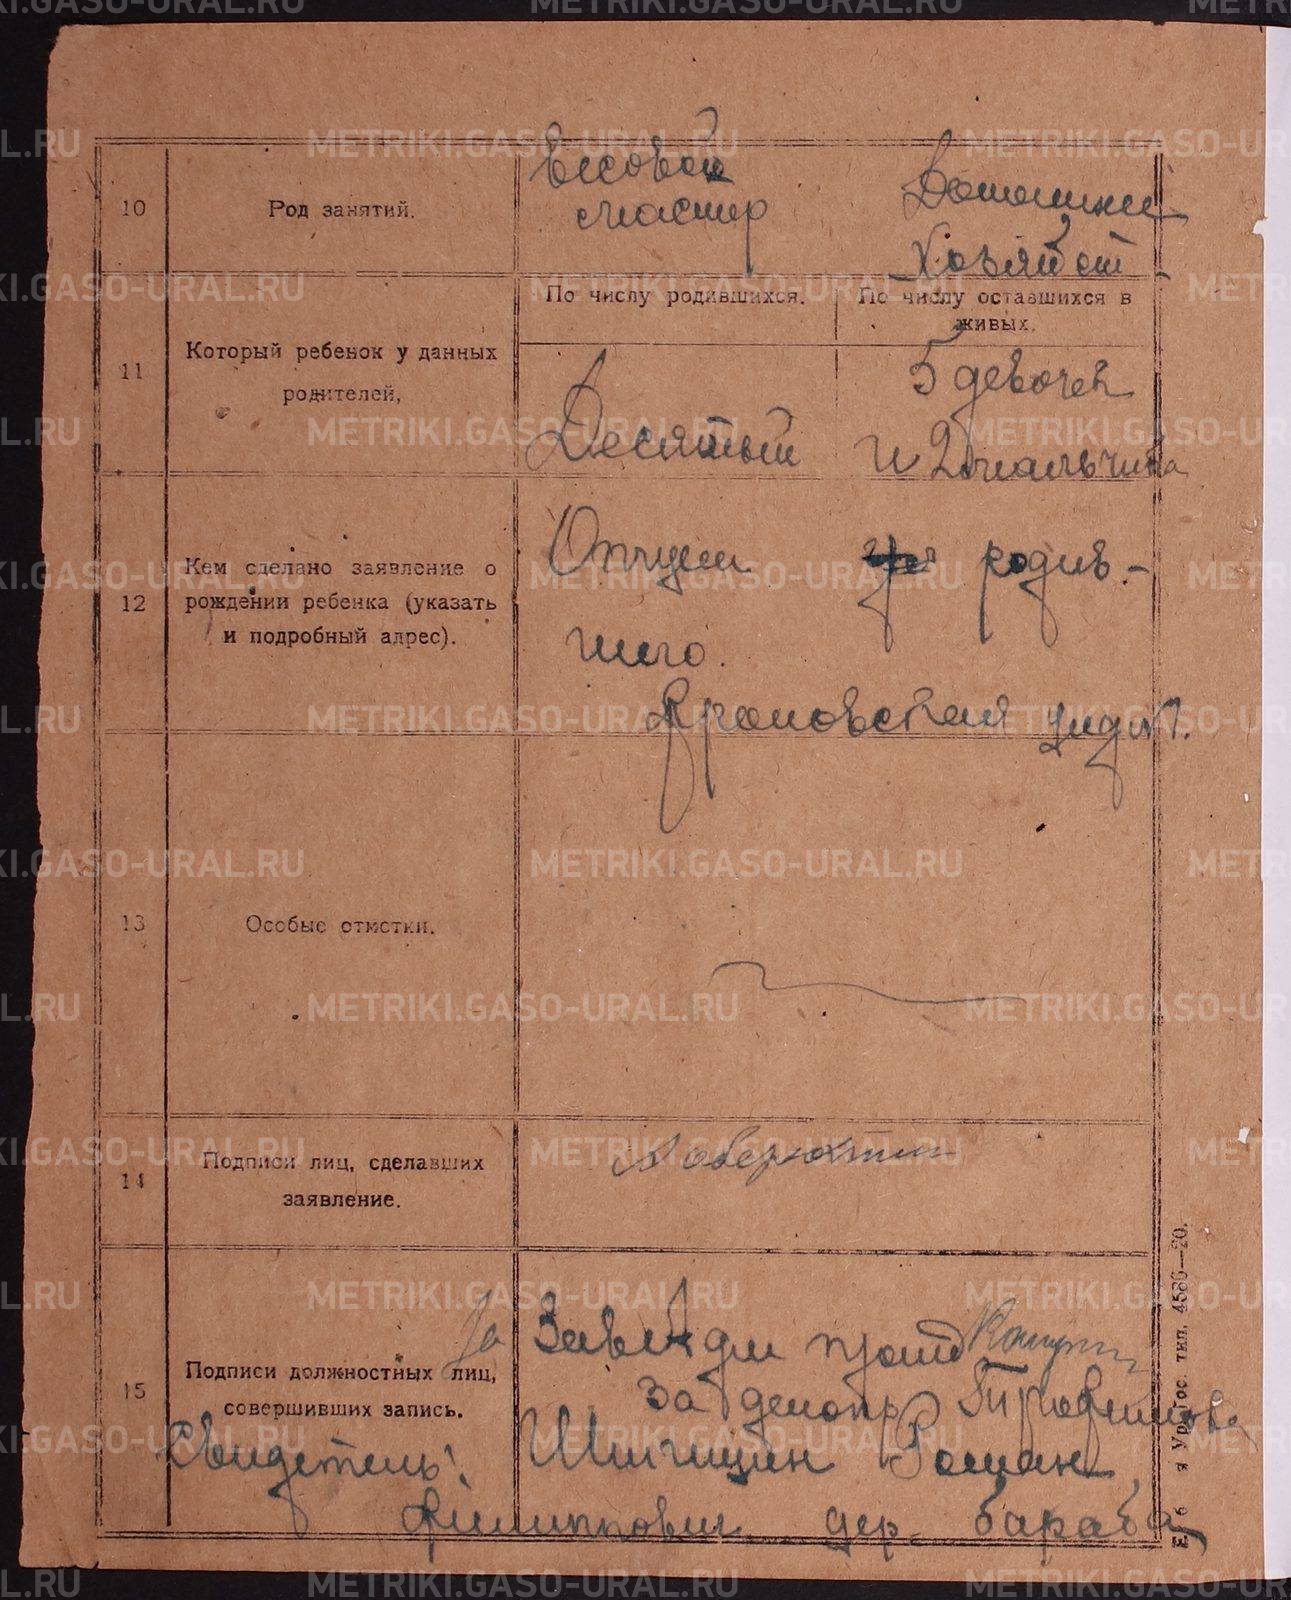 METRIKI.GASO-URAL.RU
10
Род занятий.
Весовой
мастер
Домашнее
Хозяйст
11
Который ребенок у данных
родителей,
По числу родившихся.
По числу оставшихся в
живых.
Десятый
5 девочек
и 2 мальчика
12
Кем сделано заявление о
рождении ребенка (указать
и подробный адрес).
Отцем родив-
шего.
13
Особые отметки.
14
Подписи лиц, сделавших
заявление.
15
Подписи должностных лиц,
совершивших запись.
За
За делопр Трофимов
Свидетель: Роман
Филиппович дер. бараба
Гос. тип. 4586—20.